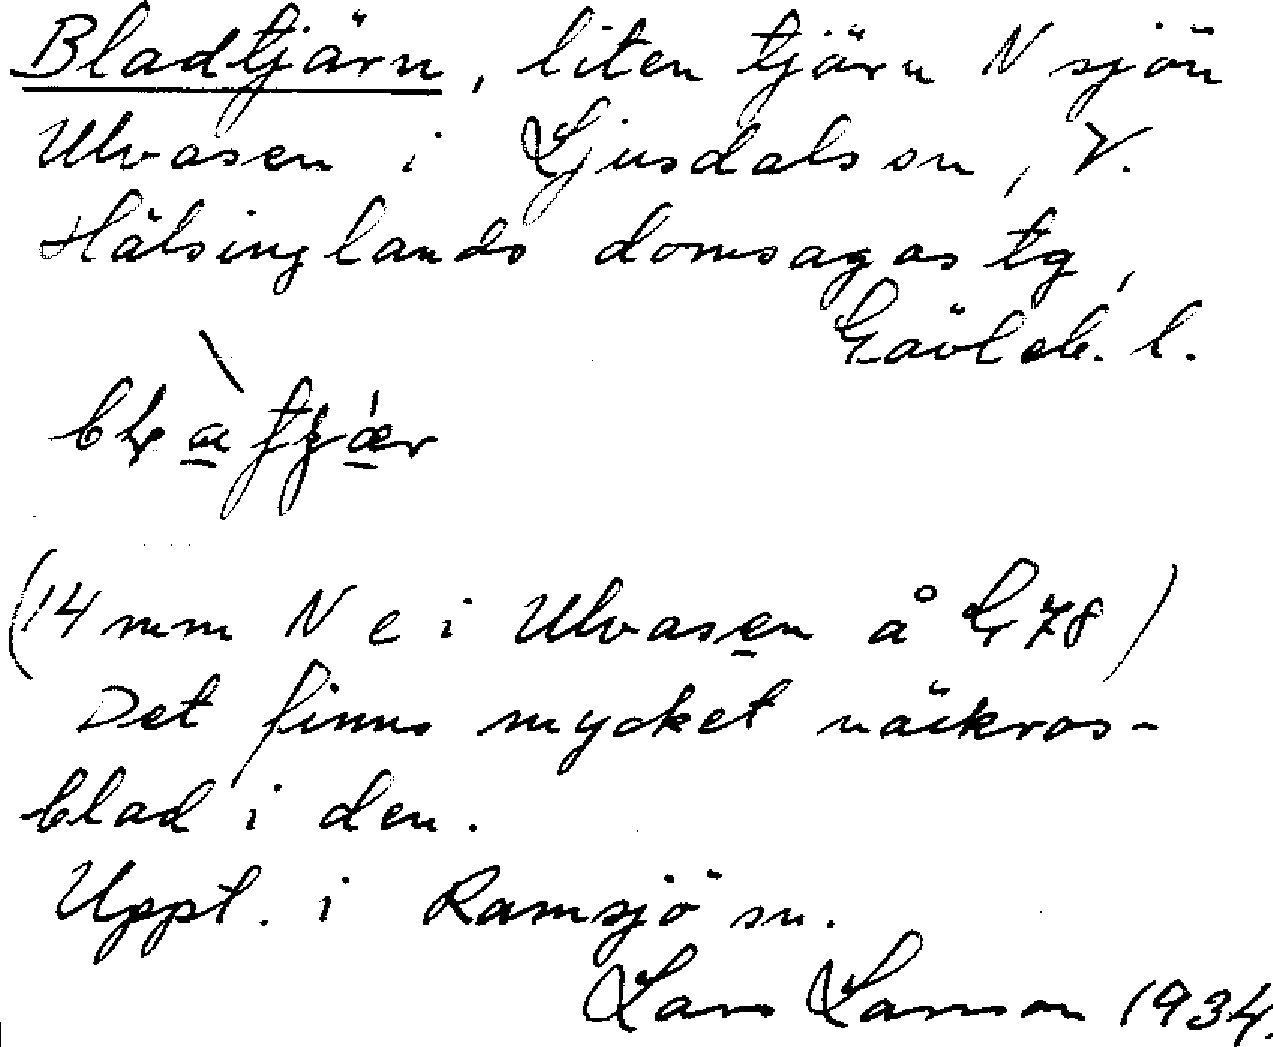 Bladtjärn, liten tjärn N sjön
Ulvasen i Ljusdals sn, V.
Hälsinglands domsagas tg,
Gävleb. l.
(14 mm N e i Ulvasen å G 78)
Det finns mycket näckros-
blad i den.
Uppt. i Ramsjö sn.
Lars Larsson 1934.